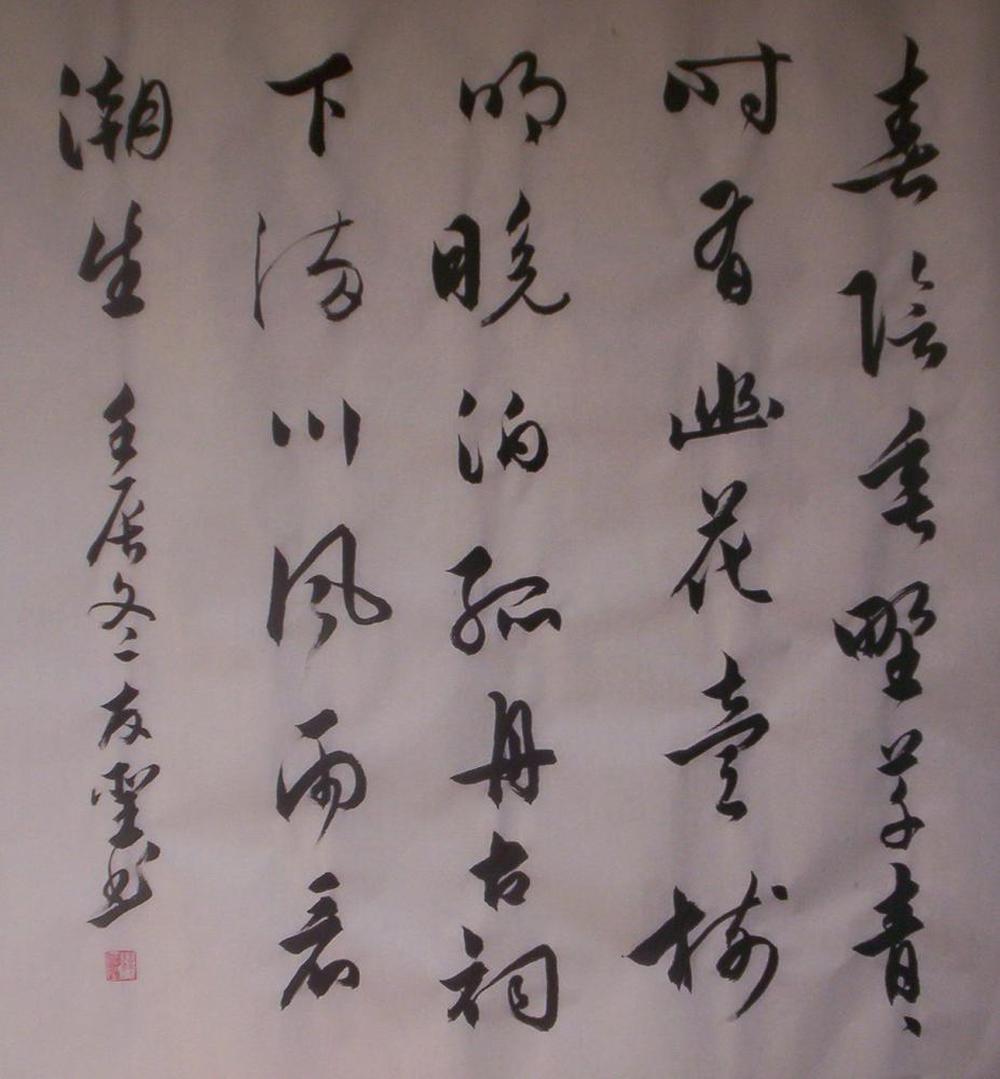 春陰垂野草青、
时有幽花壹樹
明晚泊孤舟古祠
下满川風雨看
潮生 壬辰冬 友聖书